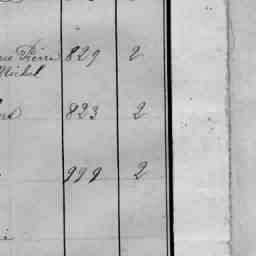 Pierre 829 2
Michel
823 2
999 2